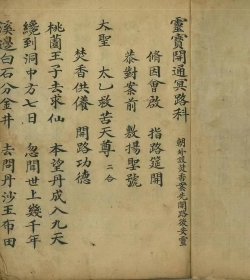 靈寶開通冥路科
香案先開路後安靈
脩因曾啟 指路筵開
恭對案前 敷揚聖號
大聖 太乙救苦天尊 二合
焚香供養 開路功德
桃薗王子去求仙 本望丹成入九天
纔到洞中方七日 忽間世上幾千年
溪邊白石分金井 去問丹沙王布田